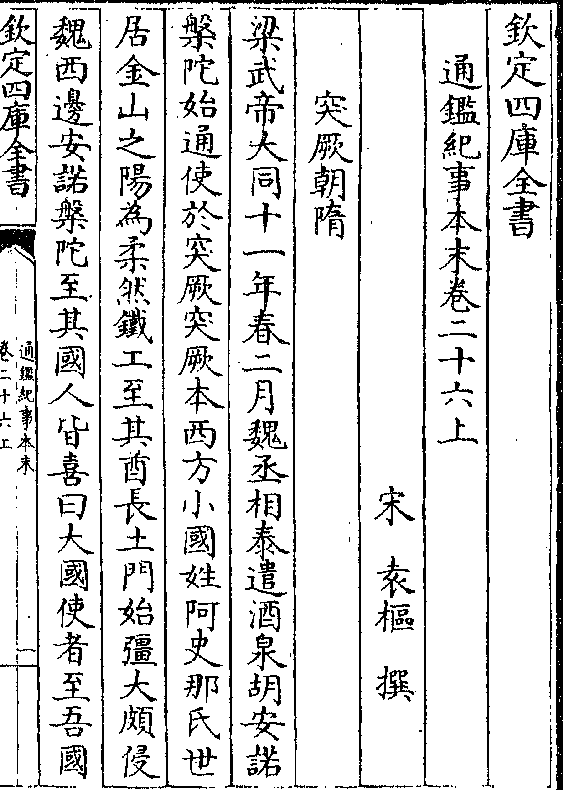 欽定四庫全書
通鑑紀事本末卷二十六上
宋 袁樞 撰
突厥朝隋
梁武帝大同十一年春二月魏丞相泰遣酒泉胡安諾
槃陀始通使於突厥突厥本西方小國姓阿史那氏世
居金山之陽為柔然鐵工至其酋長土門始彊大頗侵
魏西邊安諾槃陀至其國人皆喜曰大國使者至吾國
欽定四庫全書
通鑑紀事本末
卷二十六上
一